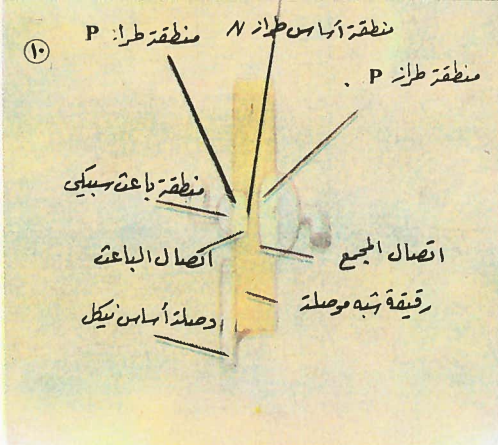 منطقة أساس طراز N
منطقة طراز P
١٠
منطقة طراز P .
منطقة باعث سبيكي
اتصال الباعث
اتصال المجمع
رقيقة شبه موصلة
وصلة أساس نيكل